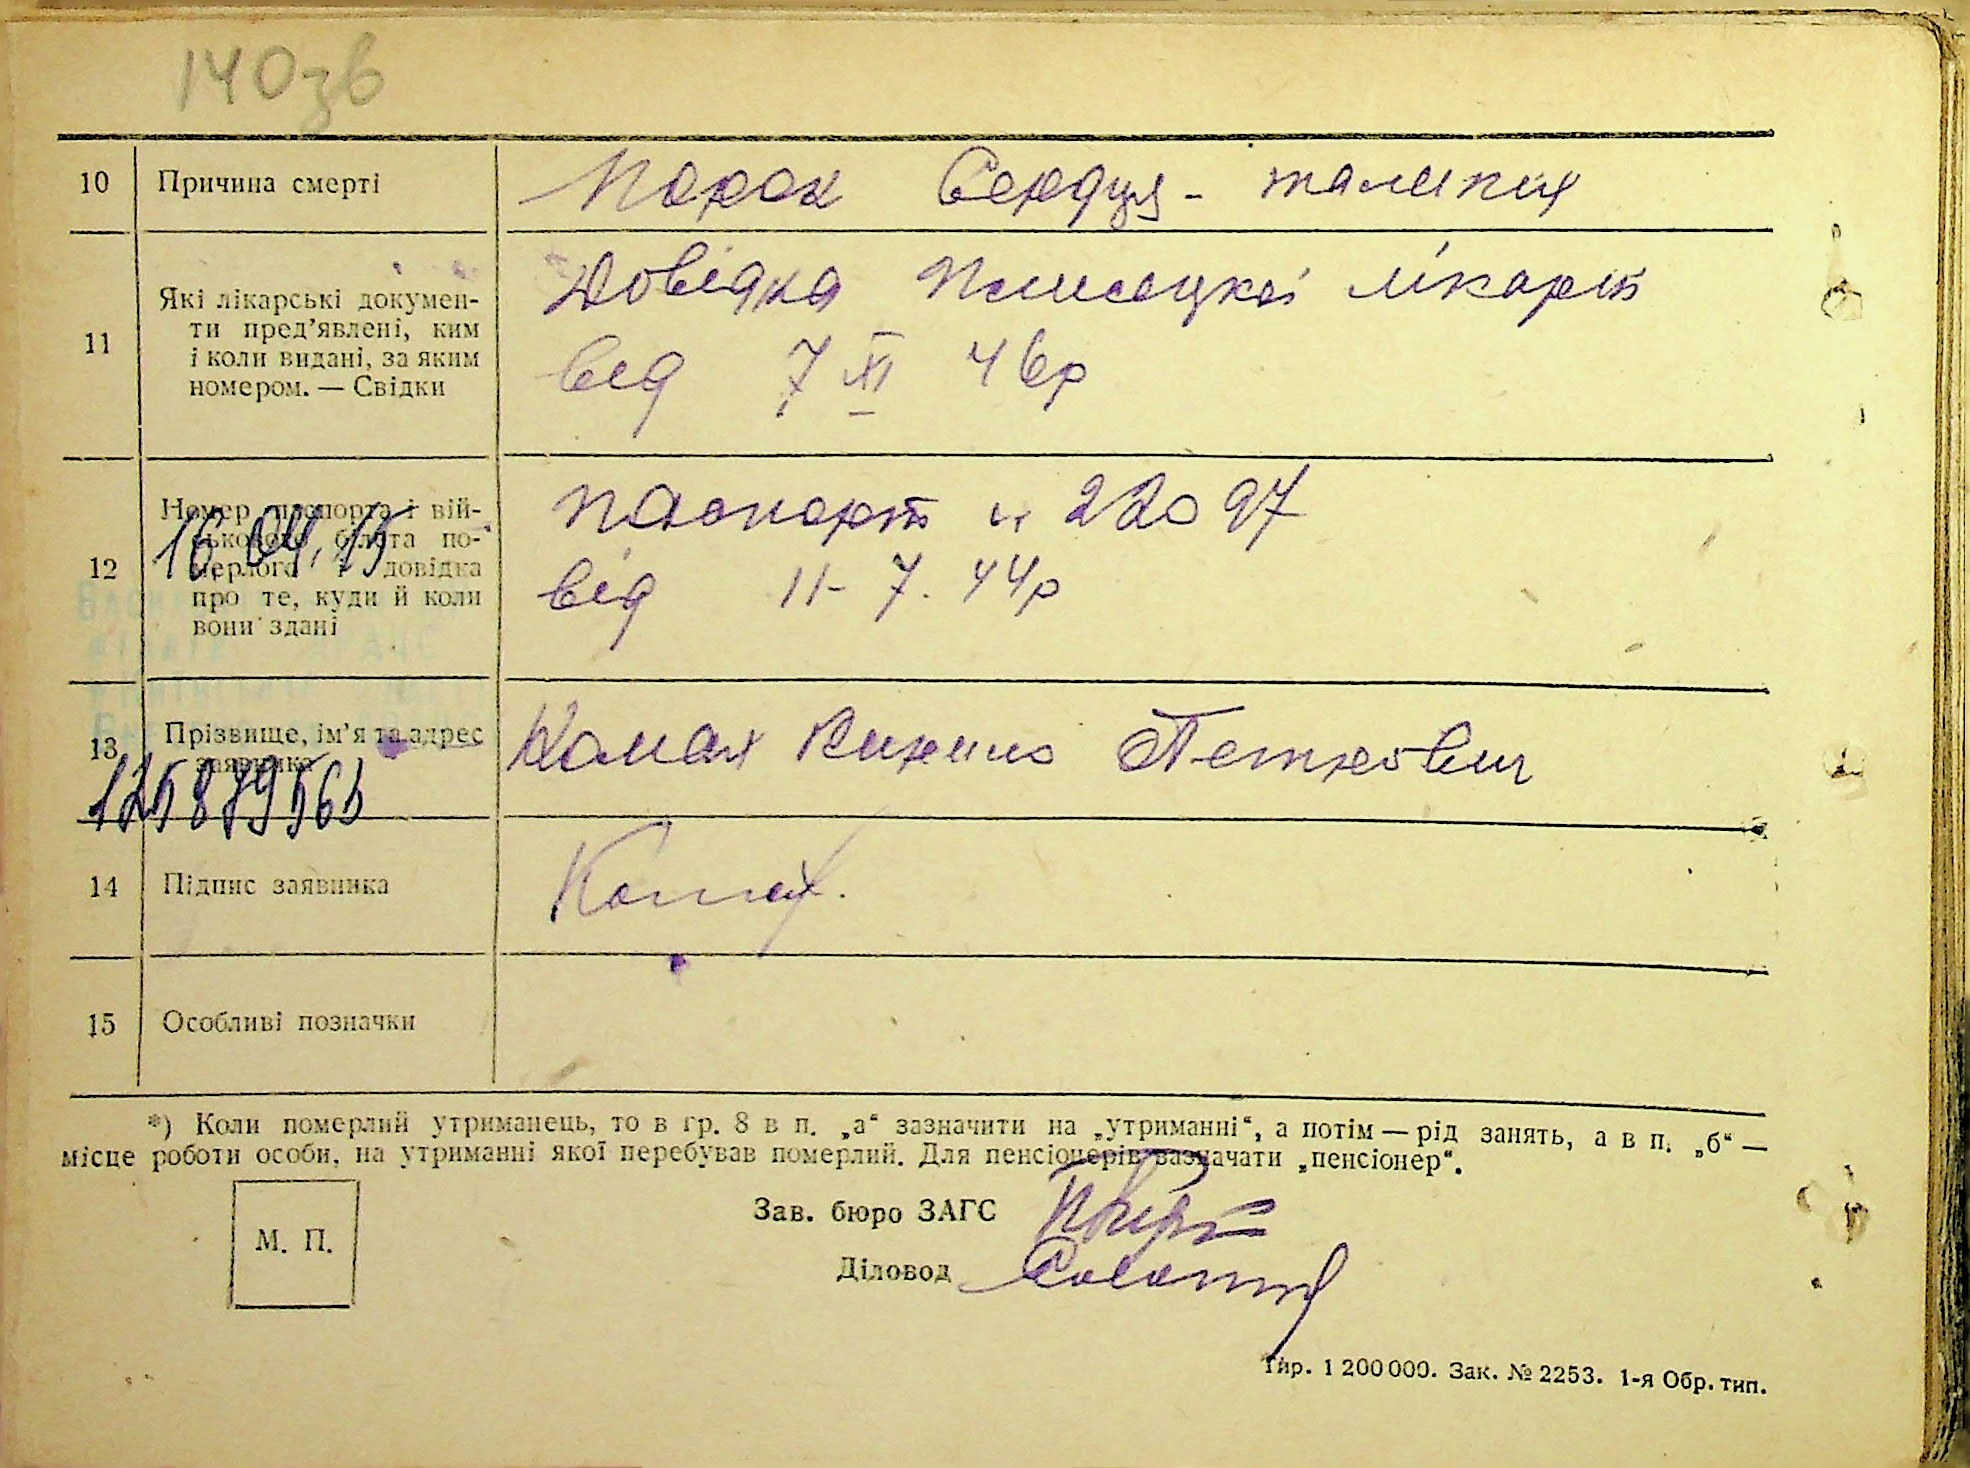 140зв
10 Причина смерті Порок Серця -
11 Які лікарські докумен-
ти пред’явлені, ким
і коли видані, за яким
номером. — Свідки
Довідка лікарні
від 7 XI 46р
12 Номер паспорта і вій-
ськового білета по-
мерлого і довідка
про те, куди й коли
вони здані
паспорт 22097
від 11- 7. 44р
16.04.15
13 Прізвище, ім’я та адрес
заявника
Петрович
14 Підпис заявника
15 Особливі позначки
*) Коли померлий утриманець, то в гр. 8 в п. „а“ зазначити на „утриманні“, а потім — рід занять, а в п. „б“ —
місце роботи особи, на утриманні якої перебував померлий. Для пенсіонерів зазначати „пенсіонер“.
М. П.
Зав. бюро ЗАГС
Діловод
Тир. 1 200 000. Зак. № 2253. 1-я Обр. тип.